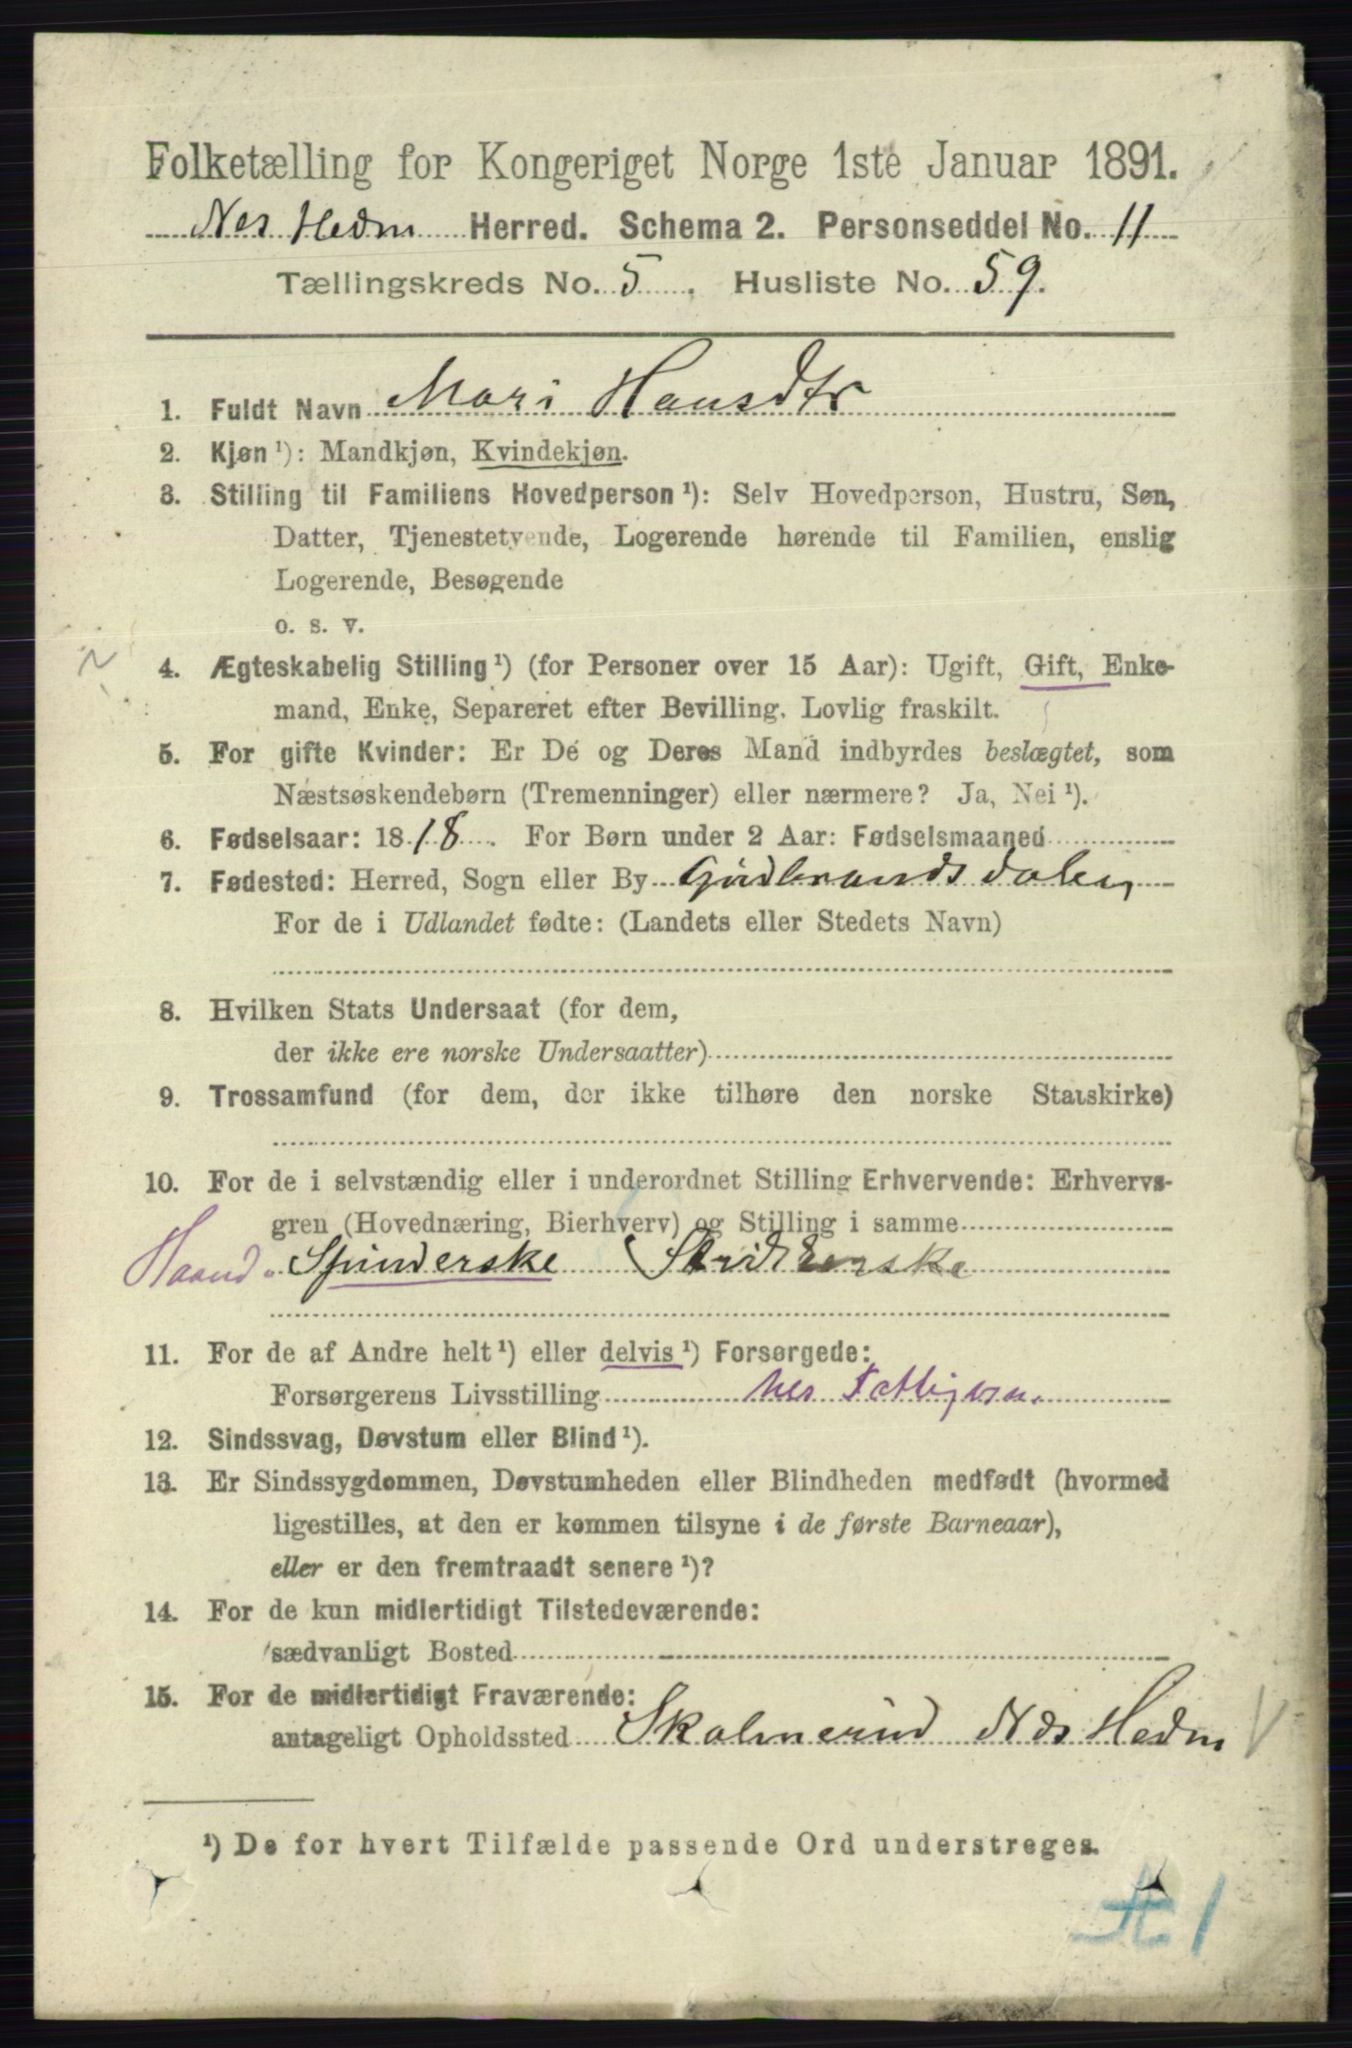 Folketælling for Kongeriget Norge 1ste Januar 1891.
Nes Hedm Herred. Schema 2. Personseddel No. 11
Tællingskreds No. 5. Husliste No. 59.
1. Fuldt Navn Mari Hansdtr
2. Kjøn ¹): Mandkjøn, Kvindekjøn.
3. Stilling til Familiens Hovedperson ¹): Selv Hovedperson, Hustru, Søn,
Datter, Tjenestetyende, Logerende hørende til Familien, enslig
Logerende, Besøgende
o. s. v.
4. Ægteskabelig Stilling ¹) (for Personer over 15 Aar): Ugift, Gift, Enke-
mand, Enke, Separeret efter Bevilling. Lovlig fraskilt.
5. For gifte Kvinder: Er De og Deres Mand indbyrdes beslægtet, som
Næstsøskendebørn (Tremenninger) eller nærmere? Ja, Nei ¹).
6. Fødselsaar: 1818. For Børn under 2 Aar: Fødselsmaaned
7. Fødested: Herred, Sogn eller By Gudbrandsdalen
For de i Udlandet fødte: (Landets eller Stedets Navn)
8. Hvilken Stats Undersaat (for dem,
der ikke ere norske Undersaatter)
9. Trossamfund (for dem, der ikke tilhøre den norske Statskirke)
10. For de i selvstændig eller i underordnet Stilling Erhvervende: Erhvervs-
gren (Hovednæring, Bierhverv) og Stilling i samme
Haand- Spinderske Strikkerske
11. For de af Andre helt ¹) eller delvis ¹) Forsørgede:
Forsørgerens Livsstilling Nes Fattigvæs.
12. Sindssvag, Døvstum eller Blind ¹).
13. Er Sindssygdommen, Døvstumheden eller Blindheden medfødt (hvormed
ligestilles, at den er kommen tilsyne i de første Barneaar),
eller er den fremtraadt senere ¹)?
14. For de kun midlertidigt Tilstedeværende:
sædvanligt Bosted
15. For de midlertidigt Fraværende:
antageligt Opholdssted Skalmerud Nes Hedm
¹) De for hvert Tilfælde passende Ord understreges.